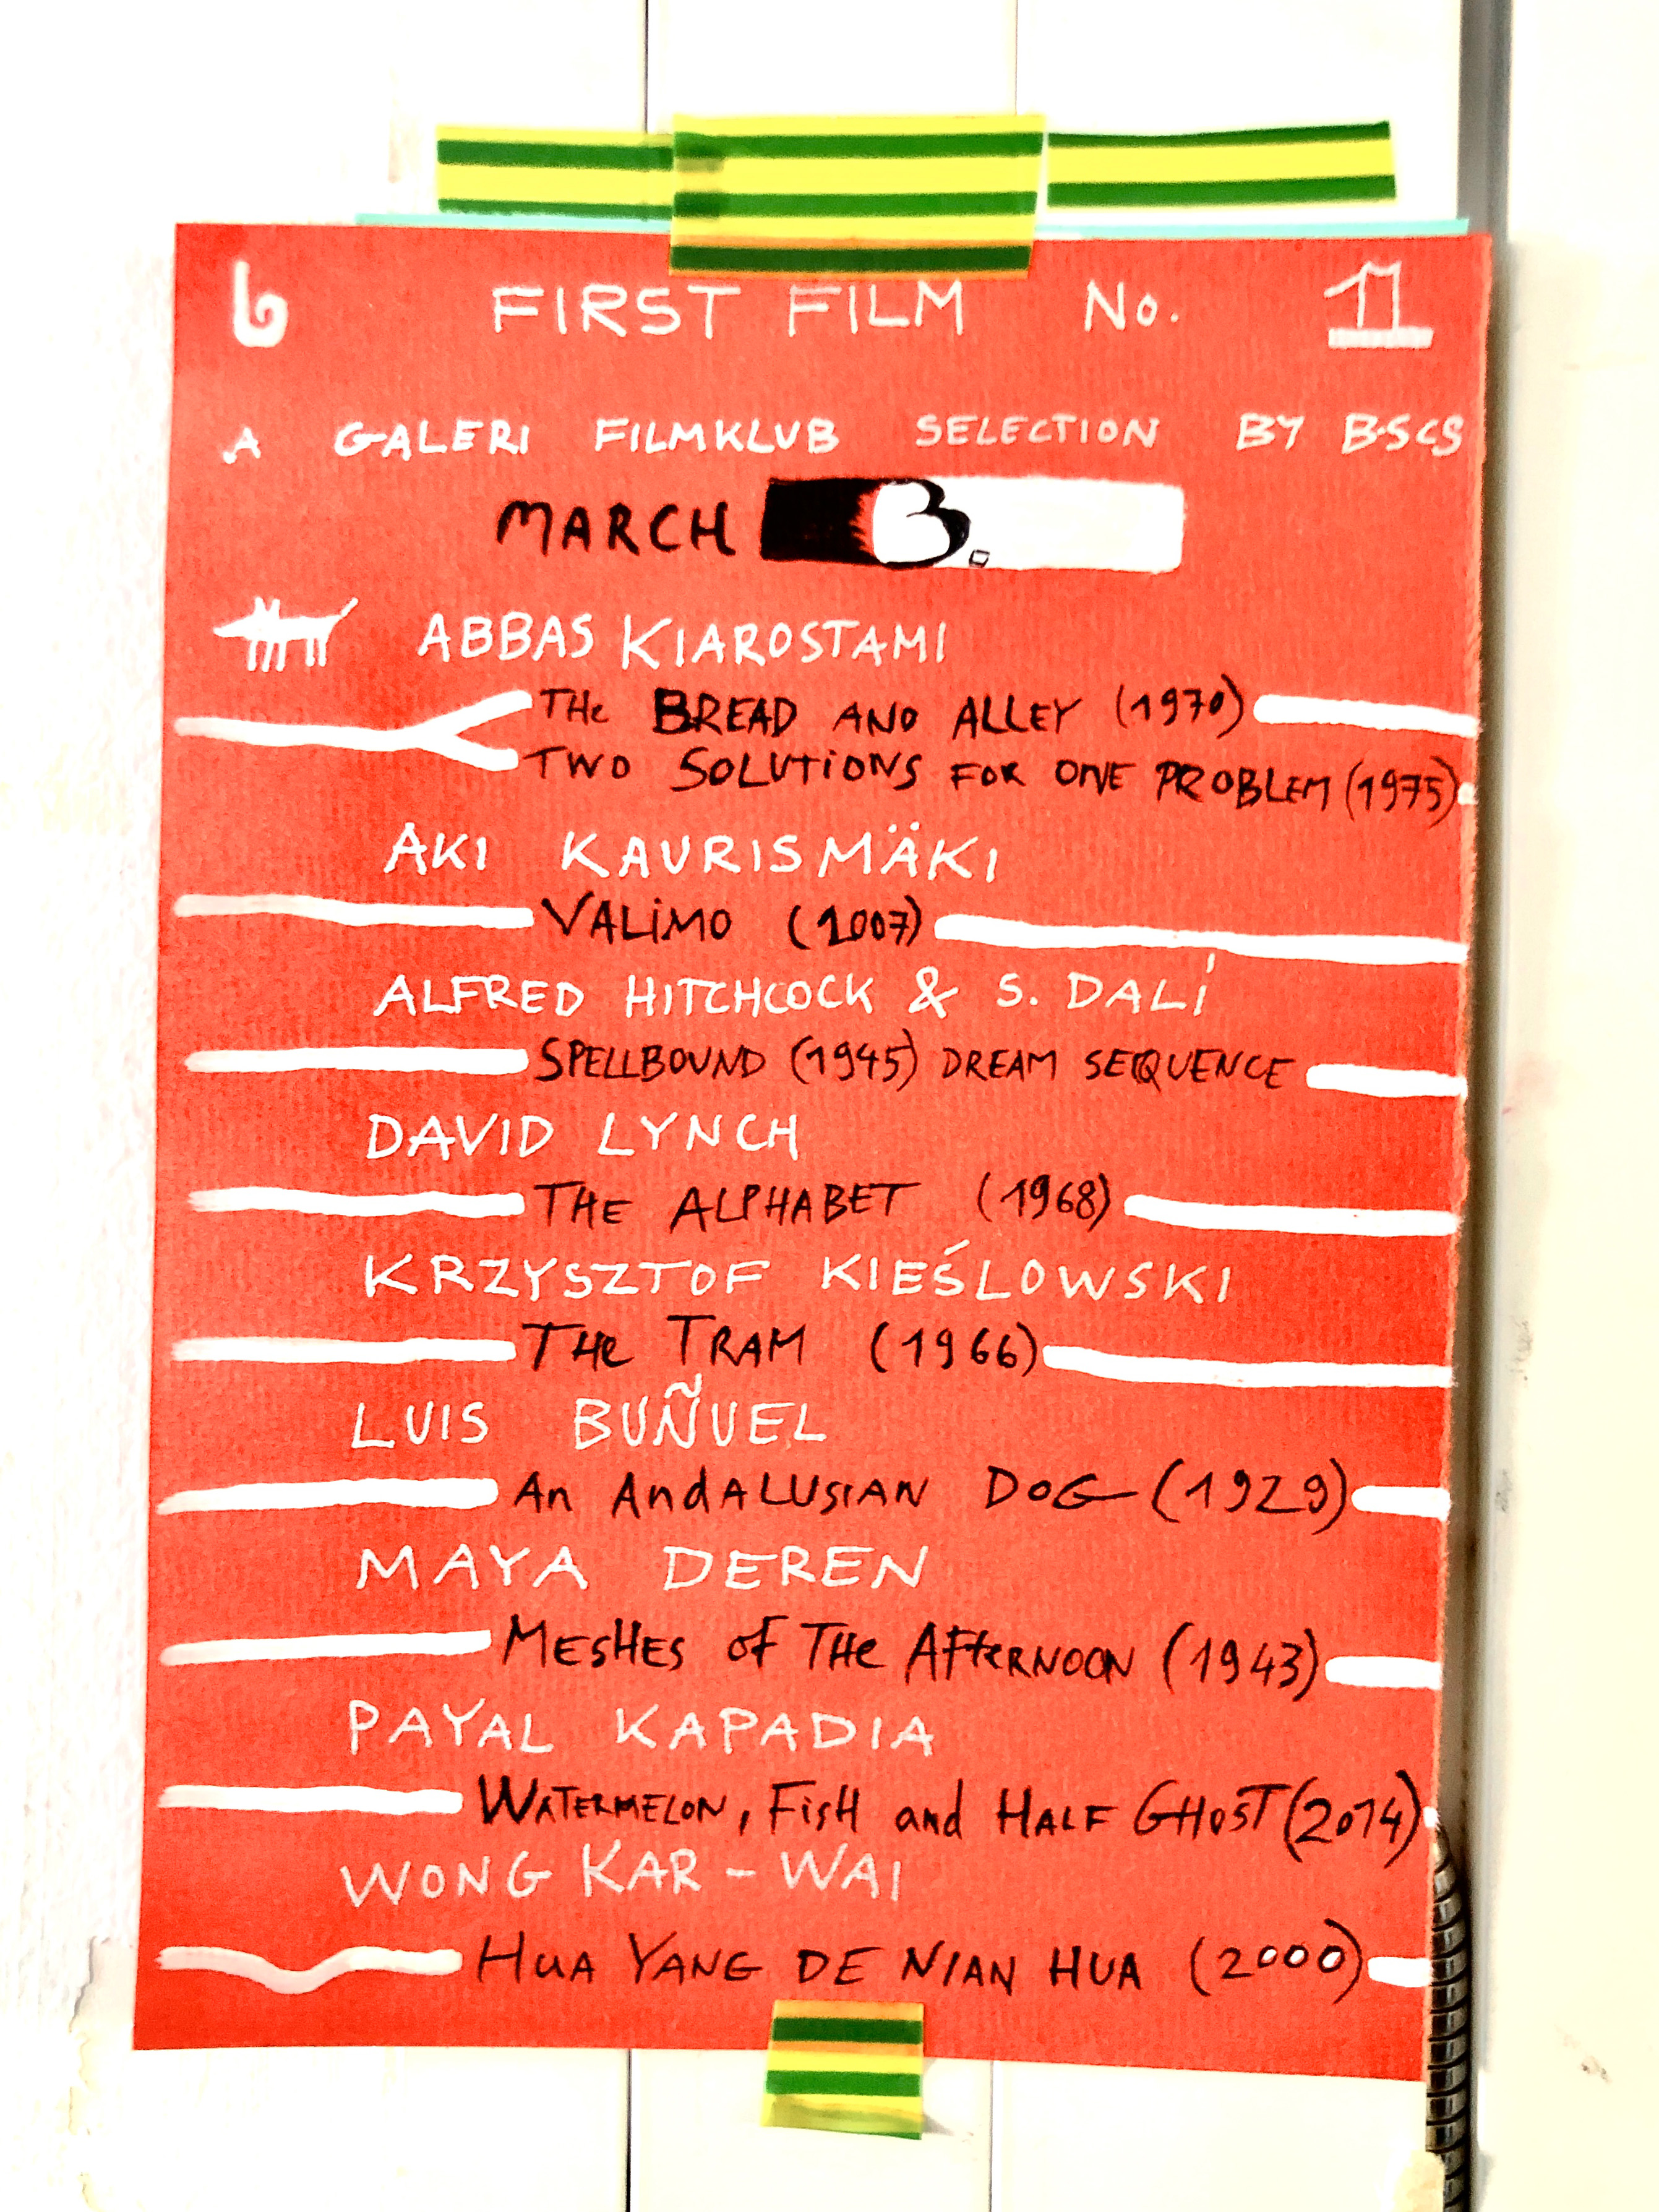 6 FIRST FILM No. 11
A GALERI FILMKLUB SELECTION BY BSCS
MARCH 3.
ABBAS KIAROSTAMI
THe BREAD AND ALLEY (1970)
TWO SOLUTiONS FOR ONE PROBLEM (1975)
AKI KAURISMÄKI
VALiMO (2007)
ALFRED HITCHCOCK & S. DALÍ
SPELLBOUND (1945) DREAM SEQUENCE
DAVID LYNCH
THE ALPHABET (1968)
KRZYSZTOF KIEŚLOWSKI
THe TRAM (1966)
LUIS BUÑUEL
An AndALUSIAN DOG (1929)
MAYA DEREN
MESHES of THe AFTeRNOON (1943)
PAYAL KAPADIA
WATERMELON, FiSH and HALF GHOST (2014)
WONG KAR-WAI
HUA YANG DE NIAN HUA (2000)